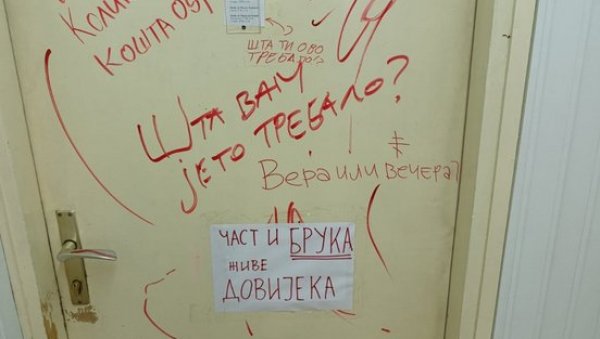 КОШТА
ШТА ТИ ОВО
ТРЕБАЛО??
ШТА ВАМ
ЈЕ ТО ТРЕБАЛО?
Вера или ВЕЧЕРА?
ЧАСТ И БРУКА
ЖИВЕ
ДОВИЈЕКА